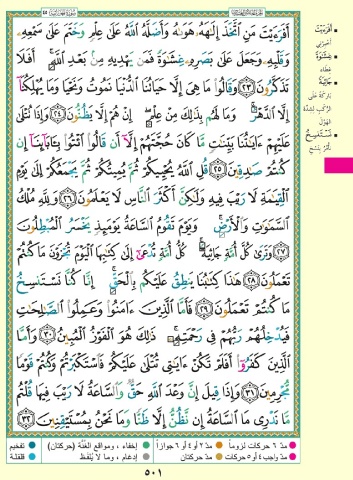 أَفَرَءَيْتَ مَنِ ٱتَّخَذَ إِلَٰهَهُۥ هَوَىٰهُ وَأَضَلَّهُ ٱللَّهُ عَلَىٰ عِلْمٍ وَخَتَمَ عَلَىٰ سَمْعِهِۦ
وَقَلْبِهِۦ وَجَعَلَ عَلَىٰ بَصَرِهِۦ غِشَٰوَةً فَمَن يَهْدِيهِ مِنۢ بَعْدِ ٱللَّهِ ۚ أَفَلَا
تَذَكَّرُونَ ٢٣ وَقَالُوا۟ مَا هِىَ إِلَّا حَيَاتُنَا ٱلدُّنْيَا نَمُوتُ وَنَحْيَا وَمَا يُهْلِكُنَآ
إِلَّا ٱلدَّهْرُ ۚ وَمَا لَهُم بِذَٰلِكَ مِنْ عِلْمٍ ۖ إِنْ هُمْ إِلَّا يَظُنُّونَ ٢٤ وَإِذَا تُتْلَىٰ
عَلَيْهِمْ ءَايَٰتُنَا بَيِّنَٰتٍ مَّا كَانَ حُجَّتَهُمْ إِلَّآ أَن قَالُوا۟ ٱئْتُوا۟ بِـَٔابَآئِنَآ إِن
كُنتُمْ صَٰدِقِينَ ٢٥ قُلِ ٱللَّهُ يُحْيِيكُمْ ثُمَّ يُمِيتُكُمْ ثُمَّ يَجْمَعُكُمْ إِلَىٰ يَوْمِ
ٱلْقِيَٰمَةِ لَا رَيْبَ فِيهِ وَلَٰكِنَّ أَكْثَرَ ٱلنَّاسِ لَا يَعْلَمُونَ ٢٦ وَلِلَّهِ مُلْكُ
ٱلسَّمَٰوَٰتِ وَٱلْأَرْضِ ۚ وَيَوْمَ تَقُومُ ٱلسَّاعَةُ يَوْمَئِذٍ يَخْسَرُ ٱلْمُبْطِلُونَ
٢٧ وَتَرَىٰ كُلَّ أُمَّةٍ جَاثِيَةً ۚ كُلُّ أُمَّةٍ تُدْعَىٰٓ إِلَىٰ كِتَٰبِهَا ٱلْيَوْمَ تُجْزَوْنَ مَا كُنتُمْ
تَعْمَلُونَ ٢٨ هَٰذَا كِتَٰبُنَا يَنطِقُ عَلَيْكُم بِٱلْحَقِّ ۚ إِنَّا كُنَّا نَسْتَنسِخُ
مَا كُنتُمْ تَعْمَلُونَ ٢٩ فَأَمَّا ٱلَّذِينَ ءَامَنُوا۟ وَعَمِلُوا۟ ٱلصَّٰلِحَٰتِ
فَيُدْخِلُهُمْ رَبُّهُمْ فِى رَحْمَتِهِۦ ۚ ذَٰلِكَ هُوَ ٱلْفَوْزُ ٱلْمُبِينُ ٣٠ وَأَمَّا
ٱلَّذِينَ كَفَرُوٓا۟ أَفَلَمْ تَكُنْ ءَايَٰتِى تُتْلَىٰ عَلَيْكُمْ فَٱسْتَكْبَرْتُمْ وَكُنتُمْ قَوْمًا
مُّجْرِمِينَ ٣١ وَإِذَا قِيلَ إِنَّ وَعْدَ ٱللَّهِ حَقٌّ وَٱلسَّاعَةُ لَا رَيْبَ فِيهَا قُلْتُم
مَّا نَدْرِى مَا ٱلسَّاعَةُ إِن نَّظُنُّ إِلَّا ظَنًّا وَمَا نَحْنُ بِمُسْتَيْقِنِينَ ٣٢
أَفَرَءَيْتَ
أخبرني
غِشَٰوَةً
غطاء
جَاثِيَةً
باركة على
الركب لشدة
الهول
نَسْتَنسِخُ
نأمر بنسخ
مدّ ٦ حركات لزوماً مدّ ٢ أو ٤ أو ٦ جوازاً إخفاء، ومواقع الغُنَّة (حركتان) تفخيم
مدّ واجب ٤ أو ٥ حركات مدّ حركتان إدغام، وما لا يُلفَظ قلقلة
٥٠١